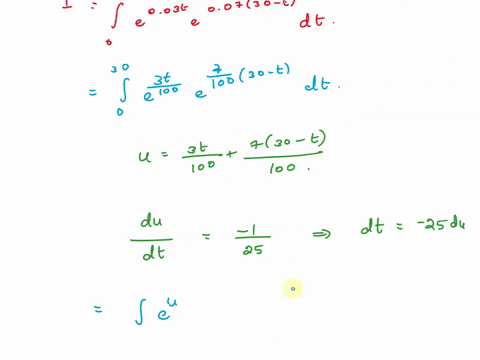 I = ∫₀ e^{0.03t} e^{0.07(30-t)} dt.
= ∫₀³⁰ e^{3t/100} e^{7/100 (30-t)} dt.
u = 3t/100 + 7(30-t)/100.
du/dt = -1/25 ⇒ dt = -25 du
= ∫ e^u